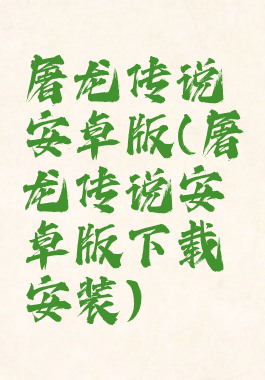 屠龙传说
安卓版(屠
龙传说安
卓版下载
安装)